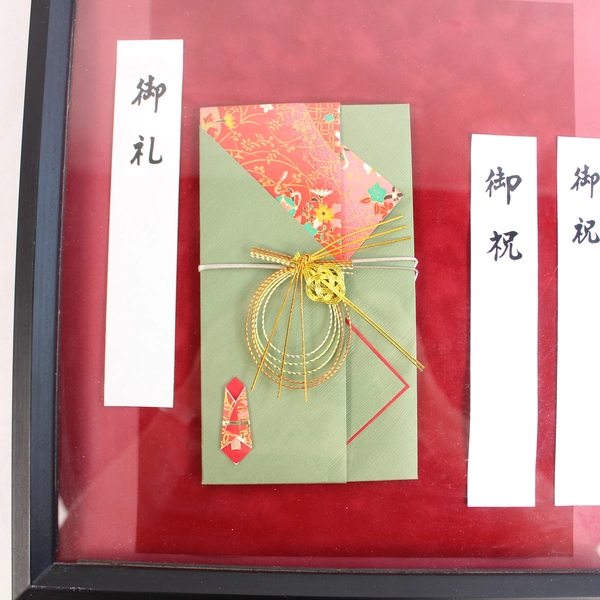 御礼
御祝
御祝